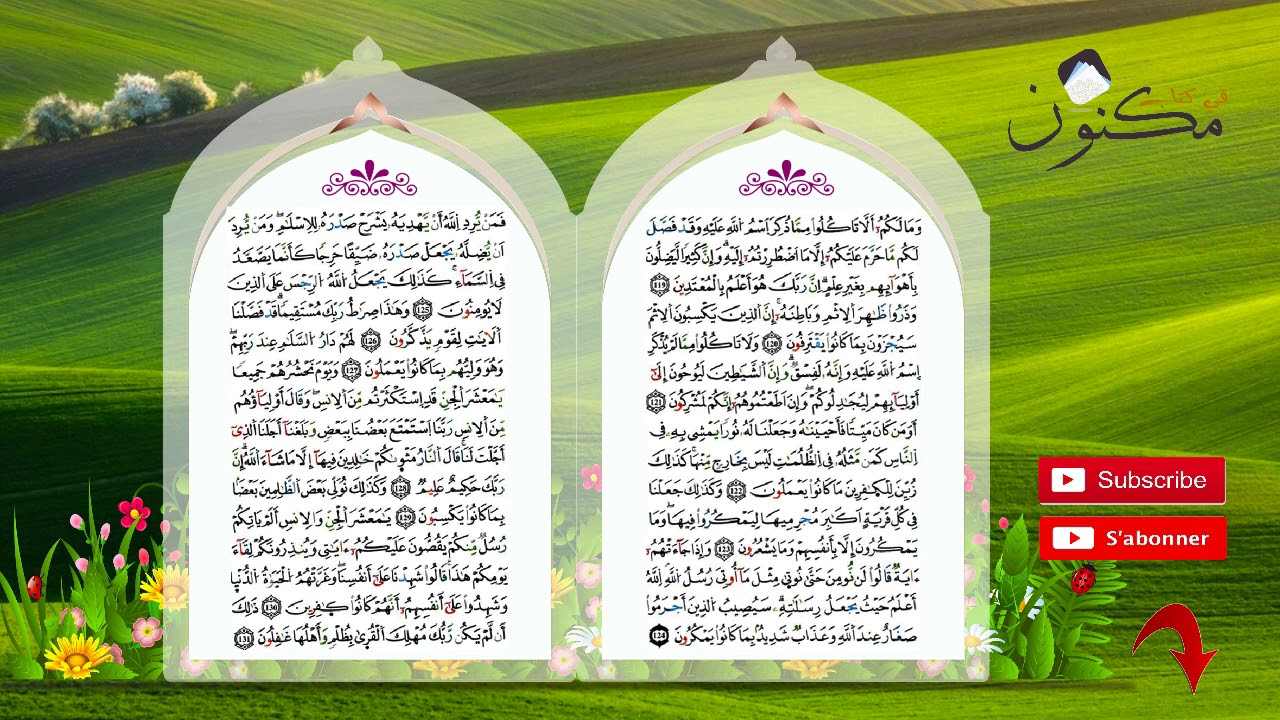 في كتاب
مكنون
وَمَا لَكُمُۥٓ أَلَّا تَاكُلُوا۟ مِمَّا ذُكِرَ اَسْمُ اُللَّهِ عَلَيْهِ وَقَدْ فَصَّلَ
لَكُم مَّا حَرَّمَ عَلَيْكُمُۥٓ إِلَّا مَا اَضْطُرِرْتُمُۥٓ إِلَيْهِۖ وَإِنَّ كَثِيرًا لَّيَضِلُّونَ
بِأَهْوَآئِهِم بِغَيْرِ عِلْمٍۖ إِنَّ رَبَّكَ هُوَ أَعْلَمُ بِالْمُعْتَدِينَ 119
وَذَرُوا۟ ظَٰهِرَ اَلِاثْمِ وَبَاطِنَهُۥٓۖ إِنَّ اَلذِينَ يَكْسِبُونَ اَلِاثْمَ
سَيُجْزَوْنَ بِمَا كَانُوا۟ يَقْتَرِفُونَ 120 وَلَا تَاكُلُوا۟ مِمَّا لَمْ يُذْكَرِ
اِسْمُ اُللَّهِ عَلَيْهِ وَإِنَّهُۥ لَفِسْقٌۖ وَإِنَّ اَلشَّيَٰطِينَ لَيُوحُونَ إِلَىٰٓ
أَوْلِيَآئِهِمْ لِيُجَٰدِلُوكُمْۖ وَإِنَ اَطَعْتُمُوهُمُۥٓ إِنَّكُمْ لَمُشْرِكُونَ 121
أَوَمَن كَانَ مَيِّتًا فَأَحْيَيْنَٰهُ وَجَعَلْنَا لَهُۥ نُورًا يَمْشِے بِهِۦ فِے
اِلنَّاسِ كَمَن مَّثَلُهُۥ فِے اِلظُّلُمَٰتِ لَيْسَ بِخَارِجٍ مِّنْهَاۖ كَذَٰلِكَ
زُيِّنَ لِلْكَٰفِرِينَ مَا كَانُوا۟ يَعْمَلُونَ 122 وَكَذَٰلِكَ جَعَلْنَا
فِے كُلِّ قَرْيَةٍ اَكَٰبِرَ مُجْرِمِيهَا لِيَمْكُرُوا۟ فِيهَاۖ وَمَا
يَمْكُرُونَ إِلَّا بِأَنفُسِهِمْ وَمَا يَشْعُرُونَ 123 وَإِذَا جَآءَتْهُمُۥٓ
ءَايَةٌ قَالُوا۟ لَن نُّومِنَ حَتَّىٰ نُوتَىٰ مِثْلَ مَآ أُوتِىَ رُسُلُ اُللَّهِۖ اِللَّهُ
أَعْلَمُ حَيْثُ يَجْعَلُ رِسَٰلَٰتِهِۦۖ سَيُصِيبُ اُلذِينَ أَجْرَمُوا۟
صَغَارٌ عِندَ اَللَّهِ وَعَذَابٌ شَدِيدٌۢ بِمَا كَانُوا۟ يَمْكُرُونَ 124
فَمَنْ يُّرِدِ اِللَّهُ أَنْ يَّهْدِيَهُۥ يَشْرَحْ صَدْرَهُۥ لِلِاسْلَٰمِۖ وَمَنْ يُّرِدَ
اَنْ يُّضِلَّهُۥ يَجْعَلْ صَدْرَهُۥ ضَيِّقًا حَرِجًا كَأَنَّمَا يَصَّعَّدُ
فِے اِلسَّمَآءِۖ كَذَٰلِكَ يَجْعَلُ اُللَّهُ اُلرِّجْسَ عَلَى اَلذِينَ
لَا يُومِنُونَ 125 وَهَٰذَا صِرَٰطُ رَبِّكَ مُسْتَقِيمًاۖ قَدْ فَصَّلْنَا
اَلَايَٰتِ لِقَوْمٍ يَذَّكَّرُونَ 126 لَهُمْ دَارُ اُلسَّلَٰمِ عِندَ رَبِّهِمْۖ
وَهُوَ وَلِيُّهُم بِمَا كَانُوا۟ يَعْمَلُونَ 127 وَيَوْمَ نَحْشُرُهُمْ جَمِيعًا
يَٰمَعْشَرَ اَلْجِنِّ قَدِ اِسْتَكْثَرْتُم مِّنَ اَلِانسِۖ وَقَالَ أَوْلِيَآؤُهُم
مِّنَ اَلِانسِ رَبَّنَا اَسْتَمْتَعَ بَعْضُنَا بِبَعْضٍ وَبَلَغْنَآ أَجَلَنَا اَلذِىٓ
أَجَّلْتَ لَنَاۖ قَالَ اَلنَّارُ مَثْوَيٰكُمْ خَٰلِدِينَ فِيهَآ إِلَّا مَا شَآءَ اَللَّهُۖ إِنَّ
رَبَّكَ حَكِيمٌ عَلِيمٌ 128 وَكَذَٰلِكَ نُوَلِّے بَعْضَ اَلظَّٰلِمِينَ بَعْضًا
بِمَا كَانُوا۟ يَكْسِبُونَ 129 يَٰمَعْشَرَ اَلْجِنِّ وَالِانسِ أَلَمْ يَاتِكُمْ
رُسُلٌ مِّنكُمْ يَقُصُّونَ عَلَيْكُمُۥٓ ءَايَٰتِے وَيُنذِرُونَكُمْ لِقَآءَ
يَوْمِكُمْ هَٰذَاۖ قَالُوا۟ شَهِدْنَا عَلَىٰٓ أَنفُسِنَاۖ وَغَرَّتْهُمُ اُلْحَيَوٰةُ اُلدُّنْيَا
وَشَهِدُوا۟ عَلَىٰٓ أَنفُسِهِمُۥٓ أَنَّهُمْ كَانُوا۟ كَٰفِرِينَ 130 ذَٰلِكَ
أَن لَّمْ يَكُن رَّبُّكَ مُهْلِكَ اَلْقُرَىٰ بِظُلْمٍ وَأَهْلُهَا غَٰفِلُونَ 131
Subscribe
S'abonner